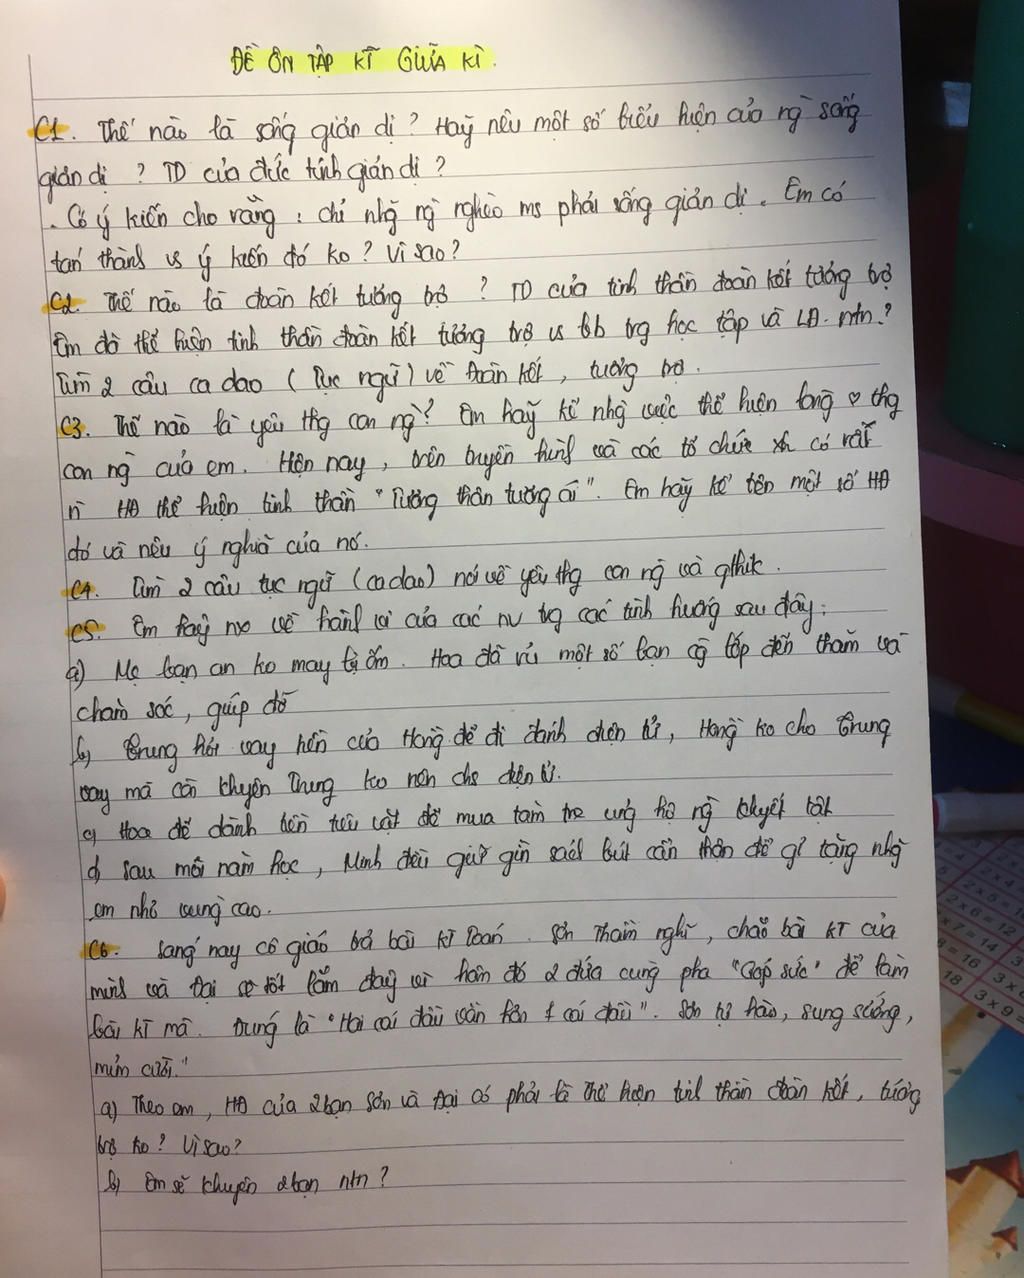 ĐỀ ÔN TẬP KĨ GIỮA KÌ.
C1. Thế nào là sống giản dị? Hãy nêu một số biểu hiện của ng sống
giản dị? TD của đức tính giản dị?
. Có ý kiến cho rằng: chỉ nhg ng nghèo ms phải sống giản dị. Em có
tán thành vs ý kiến đó ko? Vì sao?
C2. Thế nào là đoàn kết tương trợ? TD của tinh thần đoàn kết tương trợ
Em đã thể hiện tinh thần đoàn kết tương trợ vs bb trg học tập và LĐ. ntn?
Tìm 2 câu ca dao (Tục ngữ) về đoàn kết, tương trợ.
C3. Thế nào là yêu thg con ng? Em hãy kể nhg việc thể hiện lòng ♡ thg
con ng của em. Hiện nay, trên truyền hình và các tổ chức xh có rất
n HĐ thể hiện tinh thần "Tương thân tương ái". Em hãy kể tên một số HĐ
đó và nêu ý nghĩa của nó.
C4. Tìm 2 câu tục ngữ (ca dao) nói về yêu thg con ng và
C5. Em hãy nx về hành vi của các nv trg các tình huống sau đây:
a) Mẹ bạn an ko may bị ốm. Hoa đã rủ một số bạn cg lớp đến thăm và
chăm sóc, giúp đỡ
b) Trung hỏi vay tiền của Hồng để đi đánh điện tử, Hồng ko cho Trung
vay mà còn khuyên Trung ko nên chs điện tử.
c) Hoa để dành tiền tiêu vặt để mua tăm tre ủng hộ ng khuyết tật
d) sau mỗi năm học, Minh đều giữ gìn sách bút cẩn thận để gỉ tặng nhg
em nhỏ vùng cao.
C6. Sáng nay cô giáo trả bài KT Toán. Sơn Thầm nghĩ, chắc bài KT của
mình và Đại sẽ tốt lắm đây vì hôm đó 2 đứa cùng pha "Góp sức" để làm
bài KT mà. Đúng là "Hai cái đầu vẫn hơn 1 cái đầu". Sơn tự hào, sung sướng,
mỉm cười."
a) Theo em, HĐ của 2 bạn Sơn và Đại có phải là thể hiện tinh thần đoàn kết, tương
trợ ko? Vì sao?
b) Em sẽ khuyên 2 bạn ntn?
2 × 4
2 × 5 =
2 × 6 = 12
× 7 = 14
8 = 16
18
3 × 9 =